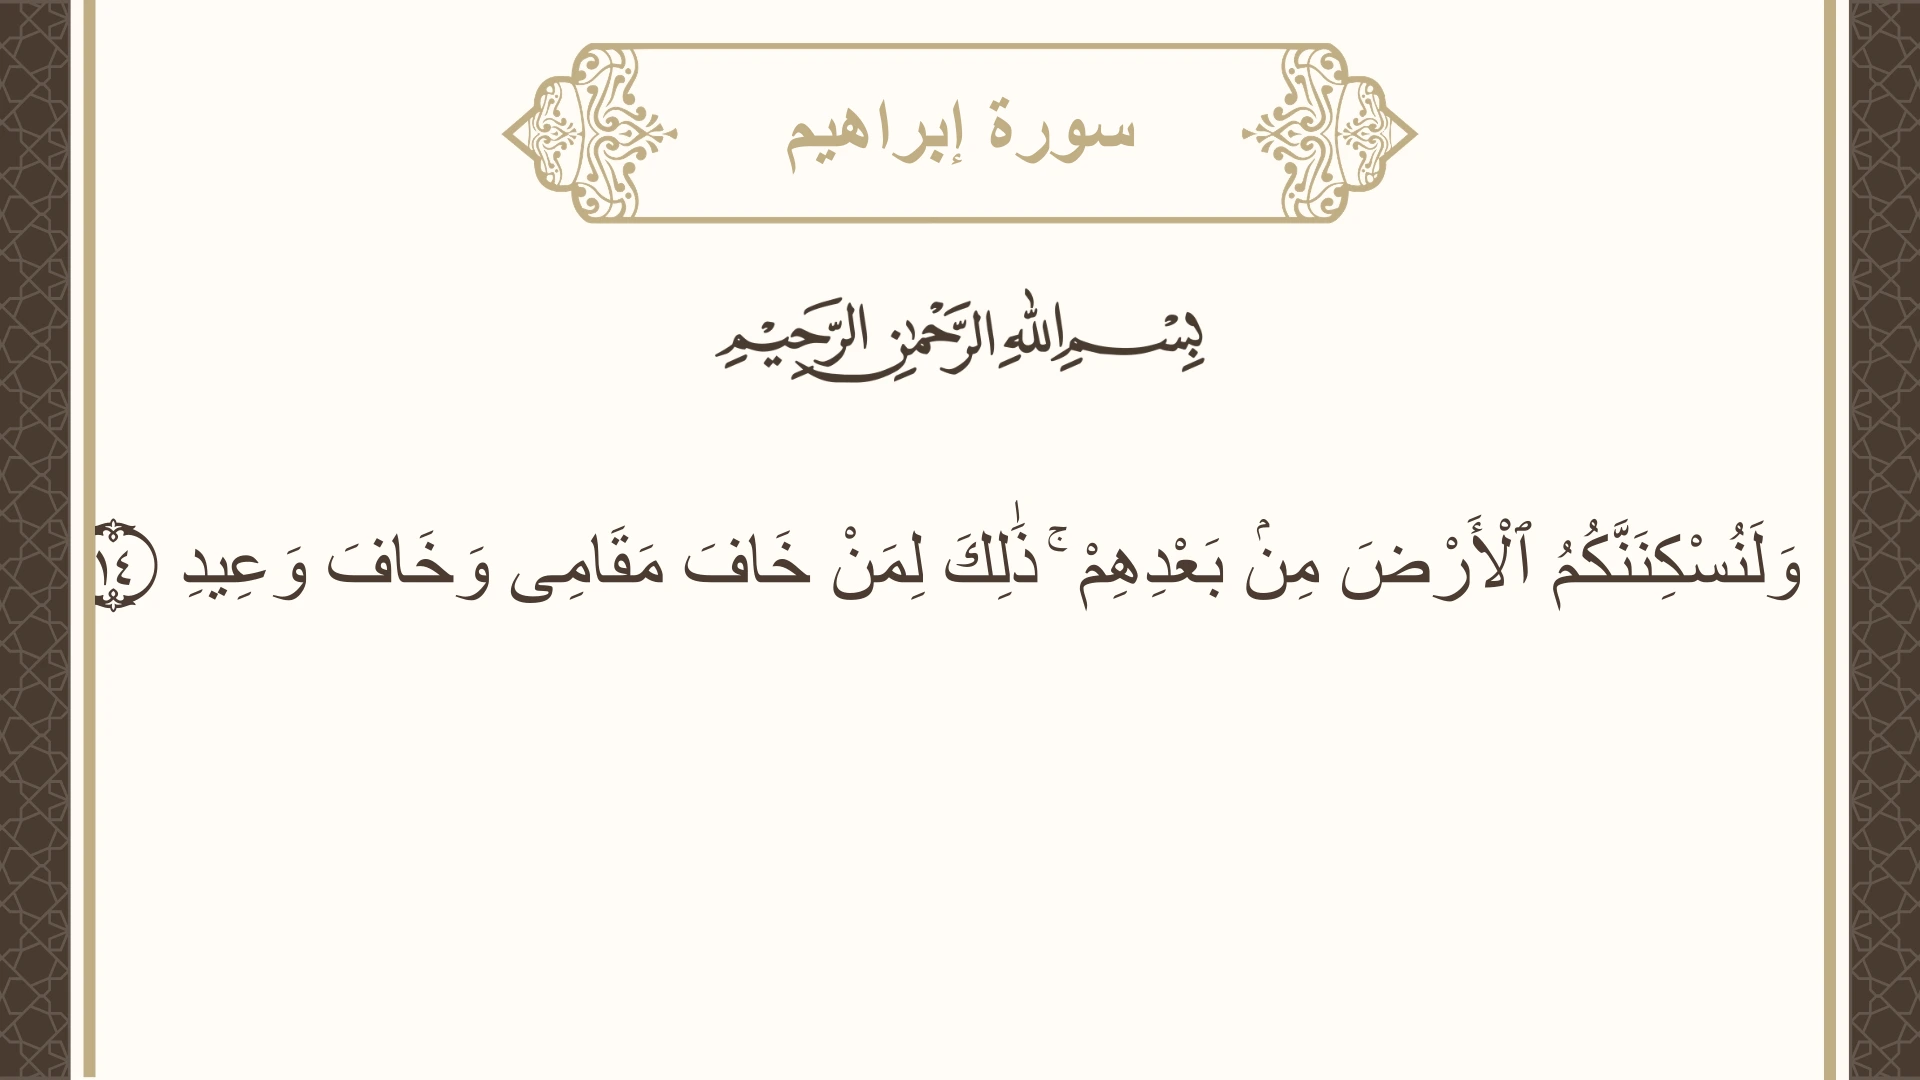 سورة إبراهيم
بِسْمِ اللهِ الرَّحْمٰنِ الرَّحِيْمِ
وَلَنُسْكِنَنَّكُمُ ٱلْأَرْضَ مِنۢ بَعْدِهِمْ ۚ ذَٰلِكَ لِمَنْ خَافَ مَقَامِى وَخَافَ وَعِيدِ ١٤